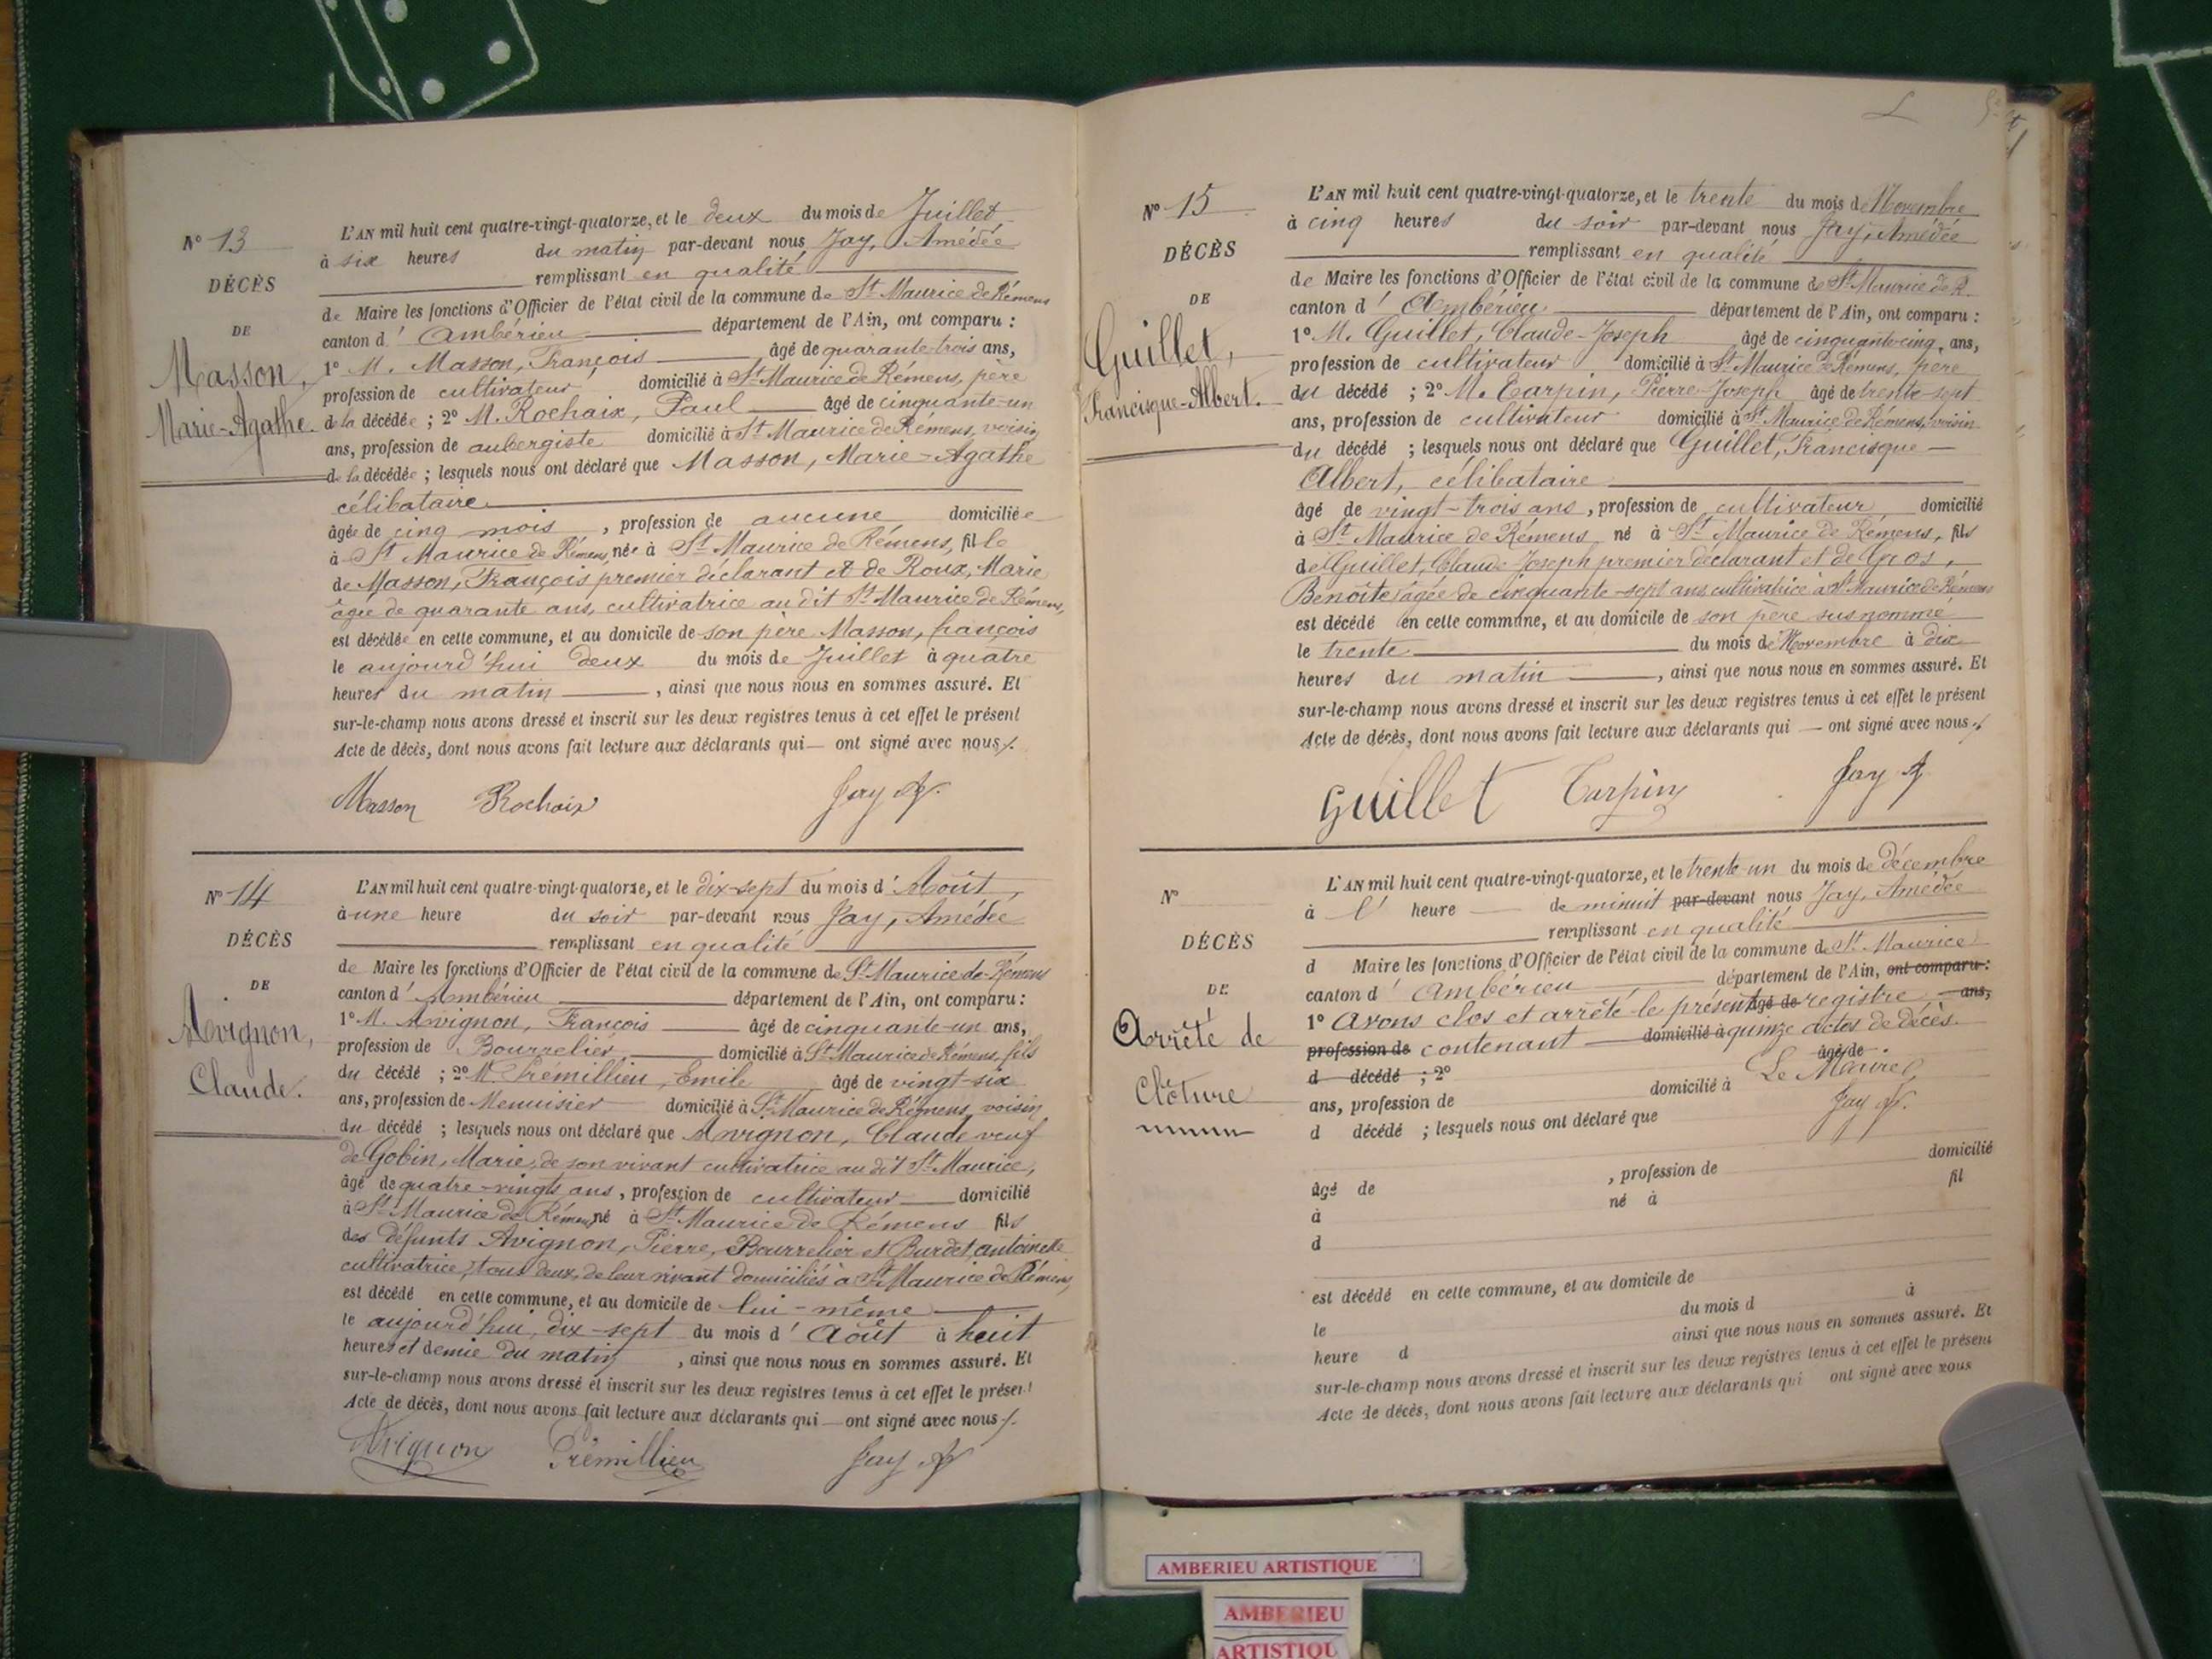 N° 13
DÉCÈS
DE
Masson,
Marie-Agathe.
L'AN mil huit cent quatre-vingt-quatorze, et le deux du mois de Juillet
à six heures du matin par-devant nous Jay, Amédée
remplissant en qualité
de Maire les fonctions d'Officier de l'état civil de la commune de St Maurice de Rémens
canton d'Ambérieu département de l'Ain, ont comparu :
1° M. Masson, François âgé de quarante-trois ans,
profession de cultivateur domicilié à St Maurice de Rémens, père
de la décédée ; 2° M. Rochaix, Paul âgé de cinquante-un
ans, profession de aubergiste domicilié à St Maurice de Rémens, voisin
de la décédée ; lesquels nous ont déclaré que Masson, Marie-Agathe
célibataire
âgée de cinq mois, profession de aucune domiciliée
à St Maurice de Rémens, née à St Maurice de Rémens, fille
de Masson, François premier déclarant et de Roux, Marie
âgée de quarante ans, cultivatrice au dit St Maurice de Rémens,
est décédée en cette commune, et au domicile de son père Masson, françois
le aujourd'hui deux du mois de Juillet à quatre
heures du matin, ainsi que nous nous en sommes assuré. Et
sur-le-champ nous avons dressé et inscrit sur les deux registres tenus à cet effet le présent
Acte de décès, dont nous avons fait lecture aux déclarants qui — ont signé avec nous ./.
Masson Rochaix Jay A.
N° 14
DÉCÈS
DE
Avignon,
Claude.
L'AN mil huit cent quatre-vingt-quatorze, et le dix-sept du mois d'Août,
à une heure du soir par-devant nous Jay, Amédée
remplissant en qualité
de Maire les fonctions d'Officier de l'état civil de la commune de St Maurice-de-Rémens
canton d'Ambérieu département de l'Ain, ont comparu :
1° M. Avignon, François âgé de cinquante-un ans,
profession de Bourrelier domicilié à St Maurice de Rémens, fils
du décédé ; 2° M. Prémillieu, Emile âgé de vingt-six
ans, profession de Menuisier domicilié à St Maurice de Rémens, voisin
du décédé ; lesquels nous ont déclaré que Avignon, Claude veuf
de Gobin, Marie, de son vivant cultivatrice au dit St Maurice,
âgé de quatre-vingts ans, profession de cultivateur domicilié
à St Maurice de Rémens né à St Maurice de Rémens fils
des défunts Avignon, Pierre, Bourrelier et Burdet, antoinette
cultivatrice, tous deux, de leur vivant domiciliés à St Maurice de Rémens,
est décédé en cette commune, et au domicile de lui-même
le aujourd'hui, dix-sept du mois d'Août à huit
heures et demie du matin, ainsi que nous nous en sommes assuré. Et
sur-le-champ nous avons dressé et inscrit sur les deux registres tenus à cet effet le présent
Acte de décès, dont nous avons fait lecture aux déclarants qui — ont signé avec nous ./.
Avignon Prémillieu Jay A.
N° 15
DÉCÈS
DE
Guillet,
Francisque-Albert.
L'AN mil huit cent quatre-vingt-quatorze, et le trente du mois de Novembre
à cinq heures du soir par-devant nous Jay, Amédée
remplissant en qualité
de Maire les fonctions d'Officier de l'état civil de la commune de St Maurice de R.
canton d'Ambérieu département de l'Ain, ont comparu :
1° M. Guillet, Claude-Joseph âgé de cinquante-cinq, ans,
profession de cultivateur domicilié à St Maurice de Rémens, père
du décédé ; 2° M. Carpin, Pierre-Joseph âgé de trente-sept
ans, profession de cultivateur domicilié à St Maurice de Rémens, voisin
du décédé ; lesquels nous ont déclaré que Guillet, Francisque-
Albert, célibataire
âgé de vingt-trois ans, profession de cultivateur domicilié
à St Maurice de Rémens né à St Maurice de Rémens, fils
de Guillet, Claude-Joseph premier déclarant et de Gros,
Benoîte âgée de cinquante-sept ans, cultivatrice à St Maurice de Rémens
est décédé en cette commune, et au domicile de son père susnommé
le trente du mois de Novembre à dix
heures du matin, ainsi que nous nous en sommes assuré. Et
sur-le-champ nous avons dressé et inscrit sur les deux registres tenus à cet effet le présent
Acte de décès, dont nous avons fait lecture aux déclarants qui — ont signé avec nous ./.
Guillet Carpin Jay A
N°
DÉCÈS
DE
Arrêté de
Clôture
L'AN mil huit cent quatre-vingt-quatorze, et le trente-un du mois de décembre
à l' heure de minuit par-devant nous Jay, Amédée
remplissant en qualité
d Maire les fonctions d'Officier de l'état civil de la commune de St Maurice
canton d'Ambérieu département de l'Ain, ont comparu :
1° Avons clos et arrêté le présent âgé de registre ans,
profession de contenant domicilié à quinze actes de décès.
d décédé ; 2° âgé de Le Maire,
ans, profession de domicilié à Jay A.
d décédé ; lesquels nous ont déclaré que
âgé de , profession de domicilié
à né à fil
d
est décédé en cette commune, et au domicile de
le du mois d à
heure d ainsi que nous nous en sommes assuré. Et
sur-le-champ nous avons dressé et inscrit sur les deux registres tenus à cet effet le présent
Acte de décès, dont nous avons fait lecture aux déclarants qui ont signé avec nous
AMBERIEU ARTISTIQUE
AMBERIEU
ARTISTIQU